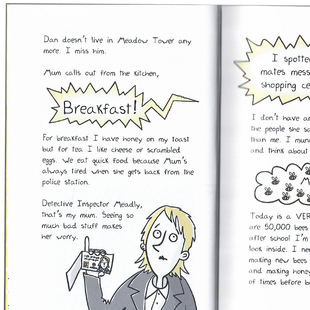 Dan doesn't live in Meadow Tower any
more. I miss him.
Mum calls out from the kitchen,
Breakfast!
For breakfast I have honey on my toast
but for tea I like cheese or scrambled
eggs. We eat quick food because Mum's
always tired when she gets back from the
police station.
Detective Inspector Meadly,
that's my mum. Seeing so
much bad stuff makes
her worry.
I spotte
mates mess
shopping ce
I don't have an
the people she sa
than me. I mun
and think about
Today is a VER
are 50,000 bees
after school I'm
look inside. I nee
making new bees
and making honey
of times before b